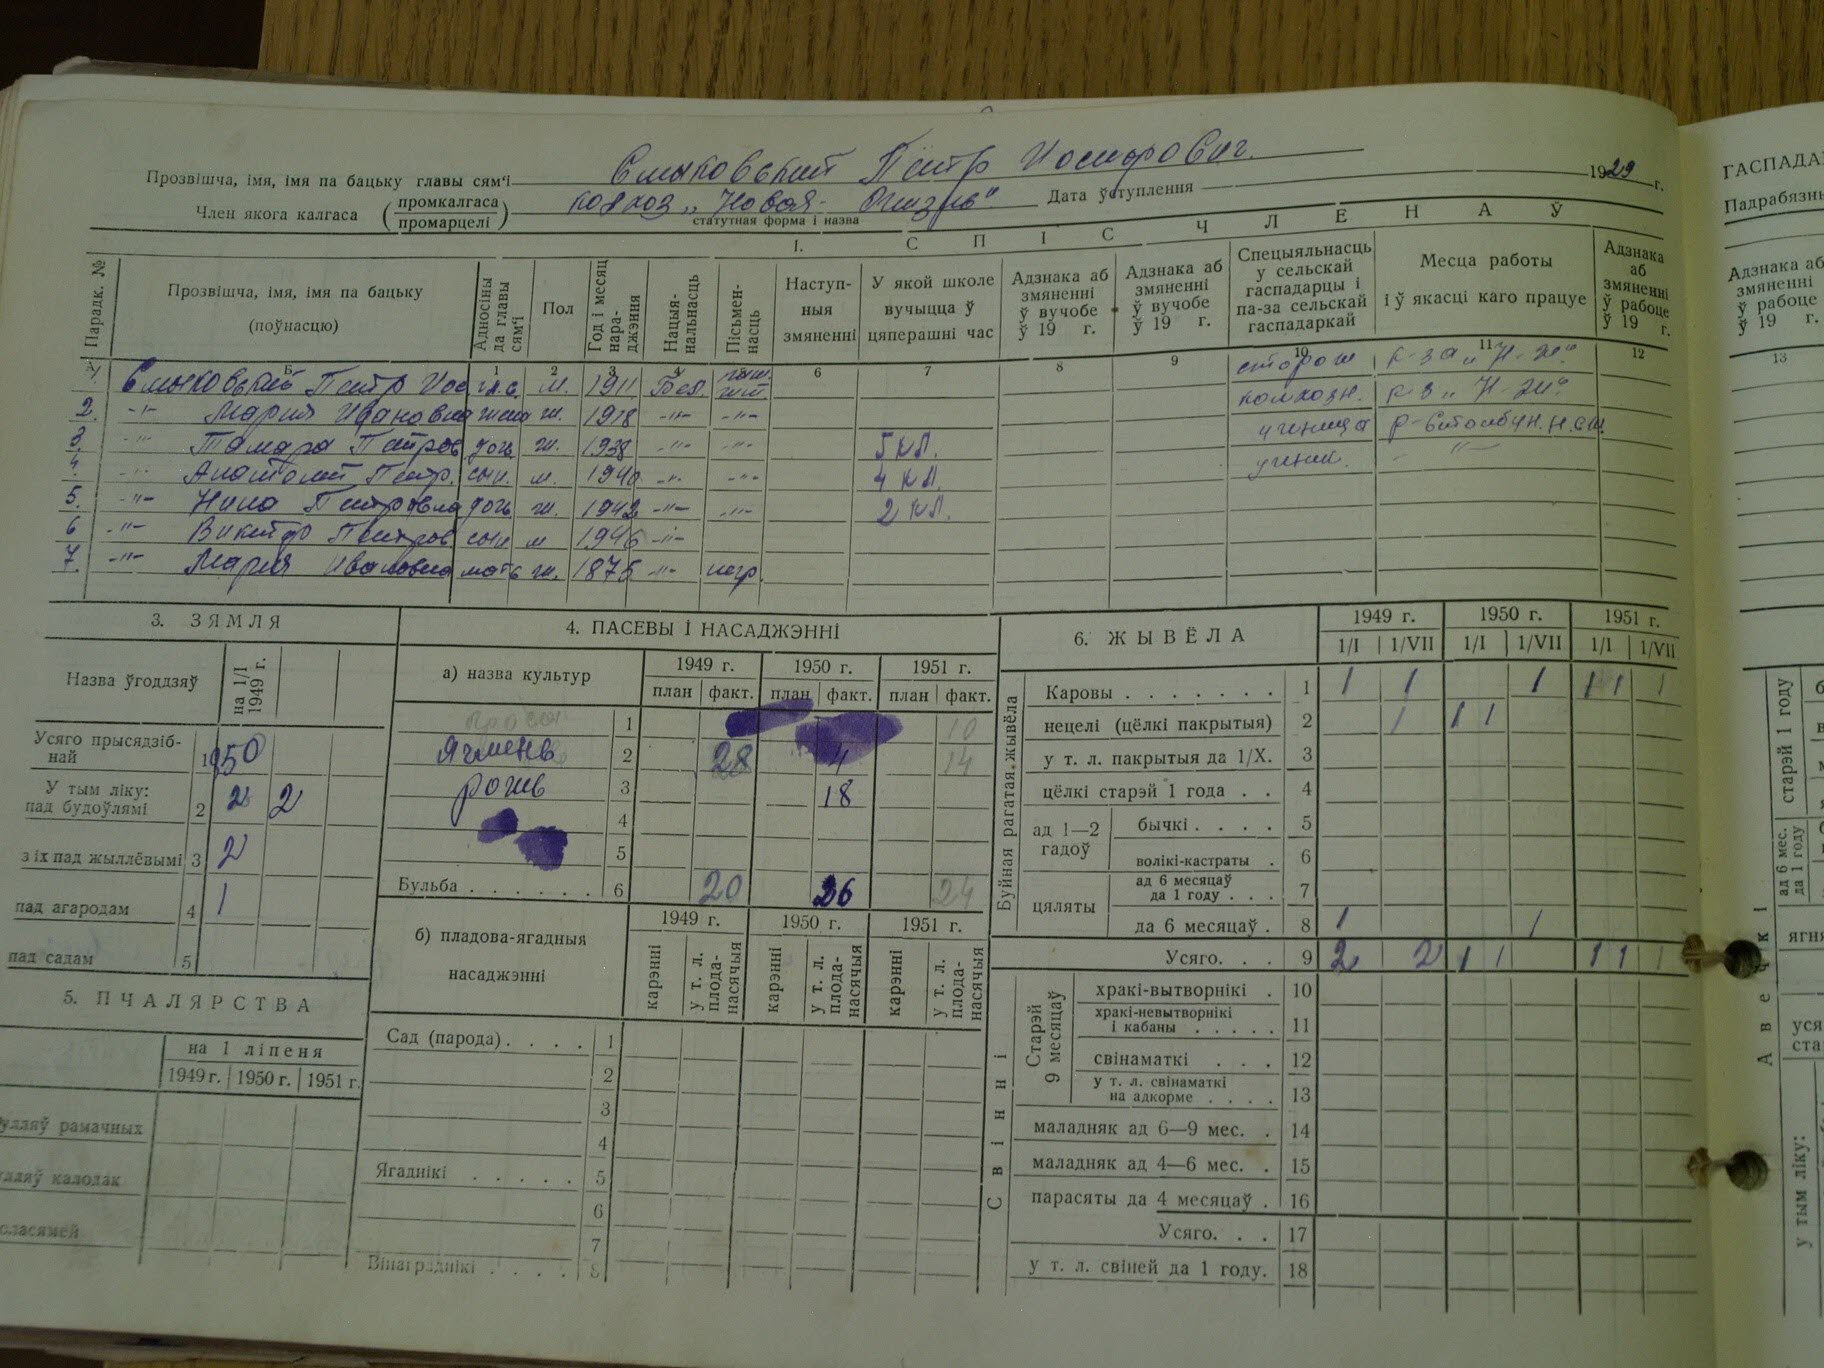 Прозвішча, імя, імя па бацьку главы сям'і Смыковский Петр Иосифович.
Член якога калгаса (промкалгаса промарцелі) колхоз „Новая Жизнь" Дата ўступлення 1929 г.
статутная форма і назва
I. СПІС ЧЛЕНАЎ
Парадк. № Прозвішча, імя, імя па бацьку (поўнасцю) Адносіны да главы сям'і Пол Год і месяц нараджэння Нацыянальнасць Пісьменнасць Наступныя змяненні У якой школе вучыцца ў цяперашні час Адзнака аб змяненні ў вучобе ў 19 г. Адзнака аб змяненні ў вучобе ў 19 г. Спецыяльнасць у сельскай гаспадарцы і па-за сельскай гаспадаркай Месца работы і ў якасці каго працуе Адзнака аб змяненні ў рабоце ў 19 г.
А Б 1 2 3 4 5 6 7 8 9 10 11 12 13
1. Смыковский Петр Иос гл.с. м. 1911 Бел. сторож к-за „Н-Ж"
2. -"- Мария Ивановна жена ж. 1918 -"- -"- колхозн. к-з „Н-Ж"
3. -"- Тамара Петров дочь ж. 1938 -"- -"- 5 кл. ученица
4 -"- Анатолий Петр. сын. м. 1940 -"- -"- 4 кл. ученик. -"-
5. -"- Нина Петровна дочь ж. 1942 -"- -"- 2 кл.
6 -"- Виктор Петров. сын м 1946 -"-
7. -"- Мария Ивановна мать ж. 1875 -"- негр.
3. ЗЯМЛЯ
Назва ўгоддзяў на 1/I 1949 г.
Усяго прысядзібнай 1 50
У тым ліку: пад будоўлямі 2 2 2
з іх пад жыллёвымі 3 2
пад агародам 4 1
пад садам 5
5. ПЧАЛЯРСТВА
на 1 ліпеня
1949 г. 1950 г. 1951 г.
улляў рамачных
улляў калодак
оласямей
4. ПАСЕВЫ І НАСАДЖЭННІ
а) назва культур 1949 г. 1950 г. 1951 г.
план факт. план факт. план факт.
просо 1 10
Ячмень 2 28 4 14
рожь 3 18
4
5
Бульба . . . . . . 6 20 26 24
б) пладова-ягадныя насаджэнні 1949 г. 1950 г. 1951 г.
карэнні у т. л. плоданасячыя карэнні у т. л. плоданасячыя карэнні у т. л. плоданасячыя
Сад (парода) . . . . 1
2
3
4
Ягаднікі . . . . . 5
6
7
Вінаграднікі . . . . 8
6. ЖЫВЁЛА 1949 г. 1950 г. 1951 г.
1/I 1/VII 1/I 1/VII 1/I 1/VII
Буйная рагатая жывёла
Каровы . . . . . . . 1 1 1 1 1 1 1
нецелі (цёлкі пакрытыя) 2 1 1 1
у т. л. пакрытыя да 1/X. 3
цёлкі старэй 1 года . . 4
ад 1—2 гадоў бычкі . . . . 5
волікі-кастраты . 6
цяляты ад 6 месяцаў да 1 году . . . 7
да 6 месяцаў . 8 1 1
Усяго. . . 9 2 2 1 1 1 1 1
Свінні
Старэй 9 месяцаў хракі-вытворнікі . 10
хракі-невытворнікі і кабаны . . . . . 11
свінаматкі . . . 12
у т. л. свінаматкі на адкорме . . . . 13
маладняк ад 6—9 мес. . 14
маладняк ад 4—6 мес. . 15
парасяты да 4 месяцаў . 16
Усяго. . . 17
у т. л. свіней да 1 году. 18
ГАСПАДА
Падрабязн
Адзнака аб змяненні ў рабоце ў 19 г.
старэй 1 году
ад 6 мес. да 1 году
Авечкі
ягня
уся
ста
у тым ліку: